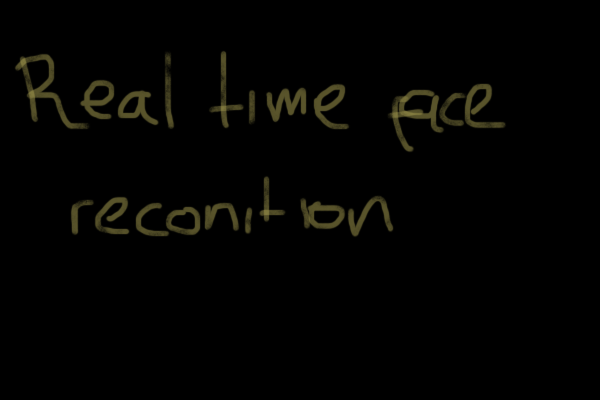 Real time face
reconition